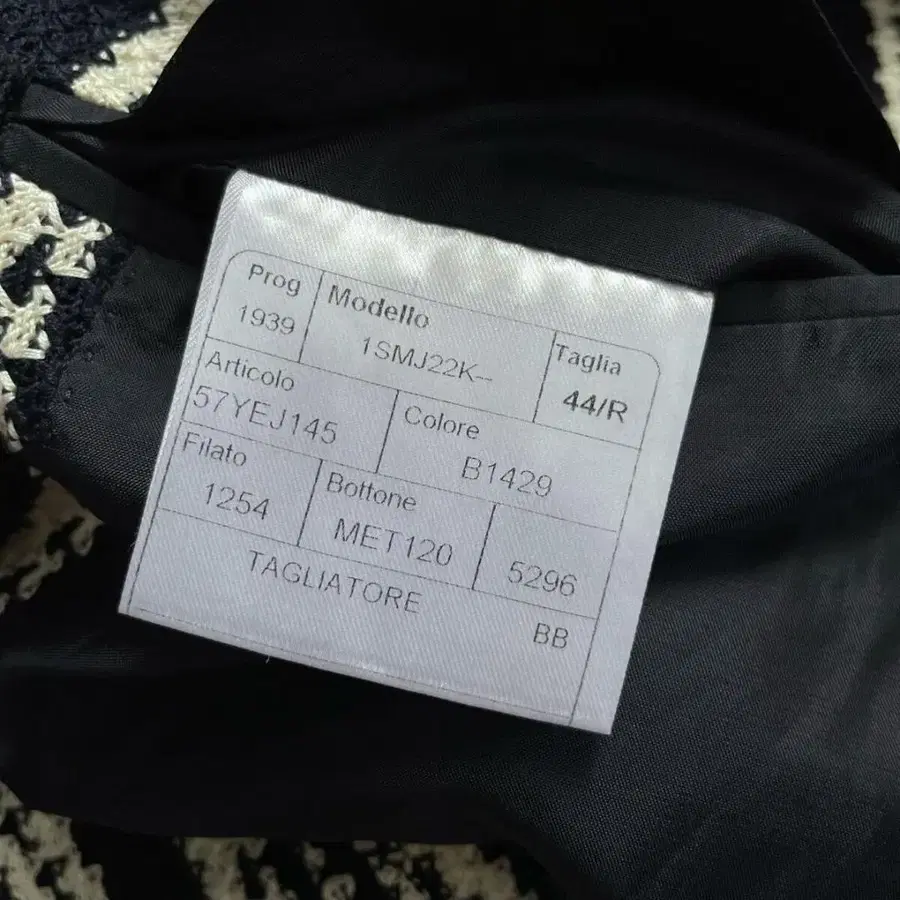 Prog Modello Taglia
1939 1SMJ22K-- 44/R
Articolo Colore
57YEJ145 B1429
Filato Bottone
1254 MET120 5296
TAGLIATORE
BB